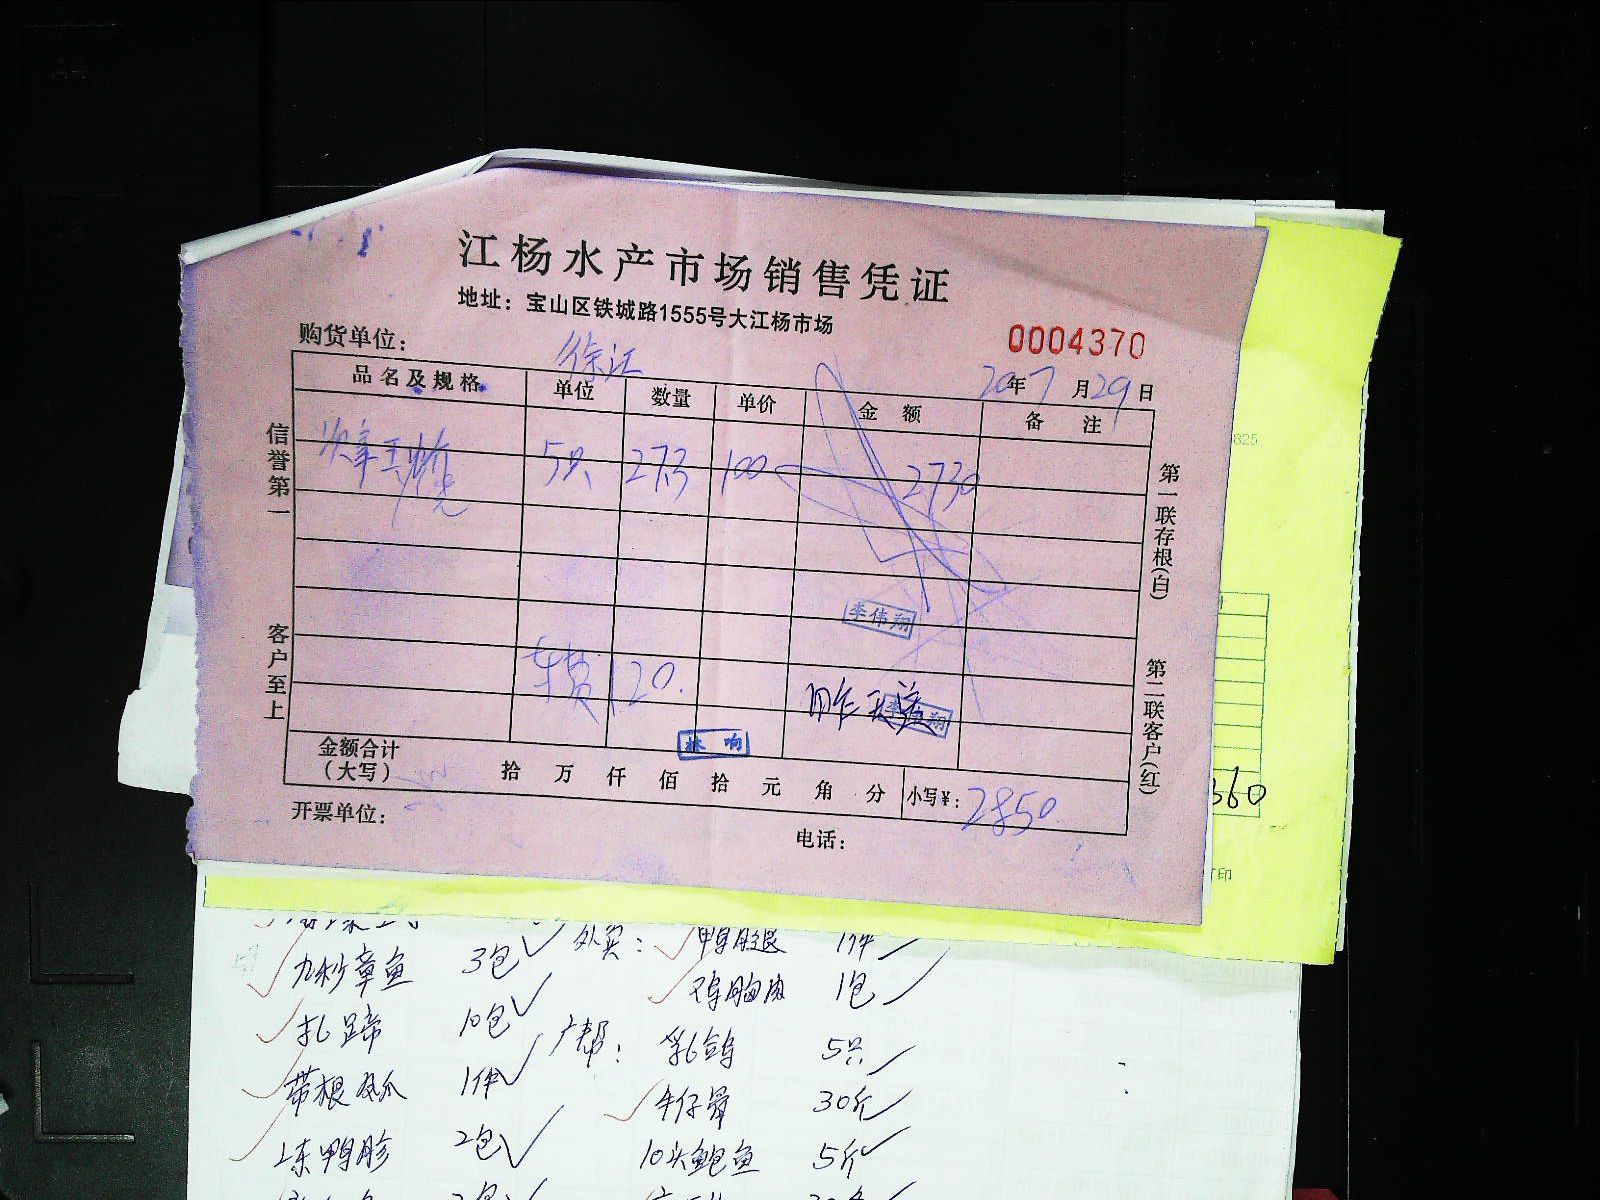 江杨水产市场销售凭证
地址：宝山区铁城路1555号大江杨市场
0004370
购货单位： 徐江
20年7月29日
品名及规格 单位 数量 单价 金额 备注
5只 27.3 100 2730
李伟翔
车费 120.
昨天
林响
金额合计（大写） 拾 万 仟 佰 拾 元 角 分 小写¥： 2850
开票单位： 电话：
信誉第一 客户至上
第一联存根(白) 第二联客户(红)
825
360
打印
九秒章鱼 3包 外卖： 鸭腿 1件
扎蹄 10包 鸡胸肉 1包
带根凤爪 1件 广帮： 乳鸽 5只
冻鸭胗 2包 牛仔骨 30斤
10头鲍鱼 5斤